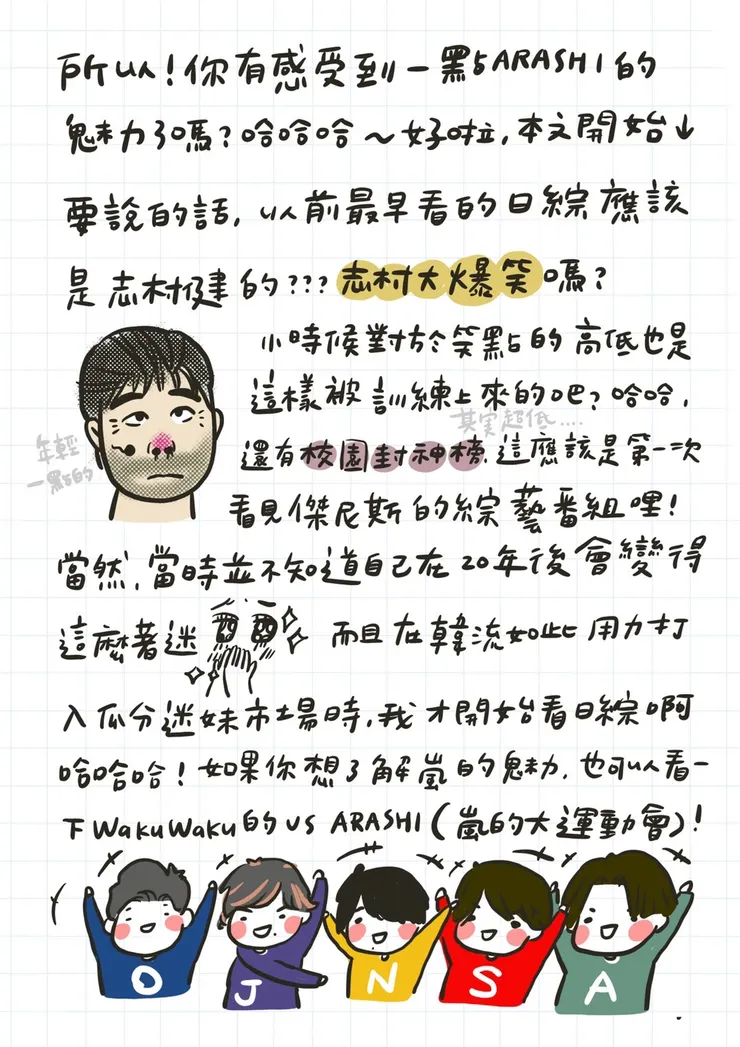 所以！你有感受到一點ARASHI的
魅力了嗎？哈哈哈～好啦，本文開始↓
要說的話，以前最早看的日綜應該
是志村健的???志村大爆笑嗎？
小時候對於笑點的高低也是
這樣被訓練上來的吧？哈哈，
其實超低....
還有校園封神榜，這應該是第一次
年輕
一點的
看見傑尼斯的綜藝番組哩！
當然，當時並不知道自己在20年後會變得
這麼著迷 而且在韓流如此用力打
入瓜分迷妹市場時，我才開始看日綜啊
哈哈哈！如果你想了解嵐的魅力，也可以看一
下WakuWaku的VS ARASHI（嵐的大運動會）！
O J N S A